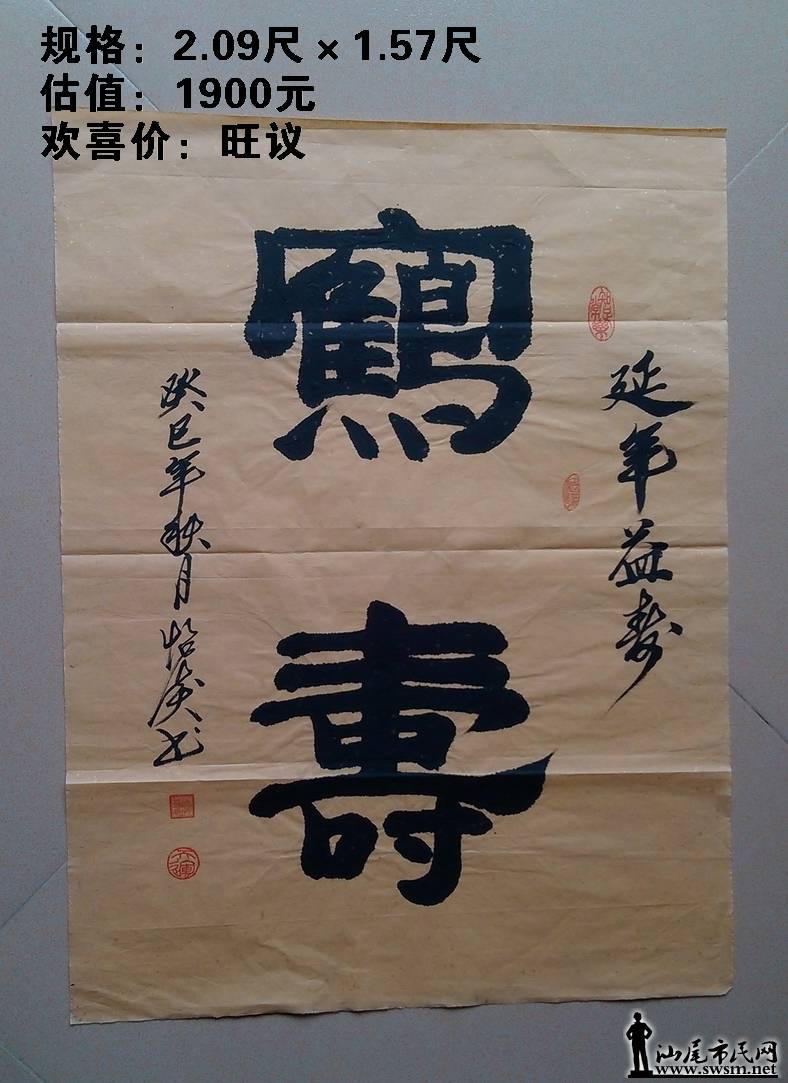 规格：2.09尺×1.57尺
估值：1900元
欢喜价：旺议
延年益寿
鶴壽
癸巳年秋月
书
汕尾市民网
www.swsm.net